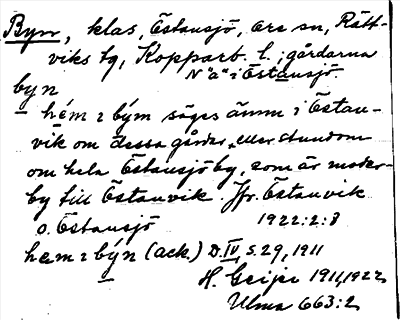 Byn, klas, Östansjö, Ore sn, Rätt-
viks tg, Kopparb. l.; gårdarna
N "a" i Östansjö.
byn
hém ɪ bým säges även i Östan-
vik om dessa gårdar, eller stundom
om hela Östansjö by, som är moder-
by till Östanvik. Jfr. Östanvik
o. Östansjö 1922:2:8
hem ɪ býn (ack.) D. IV, s. 29, 1911
H. Geijer 1911, 1922
Ulma 663:2